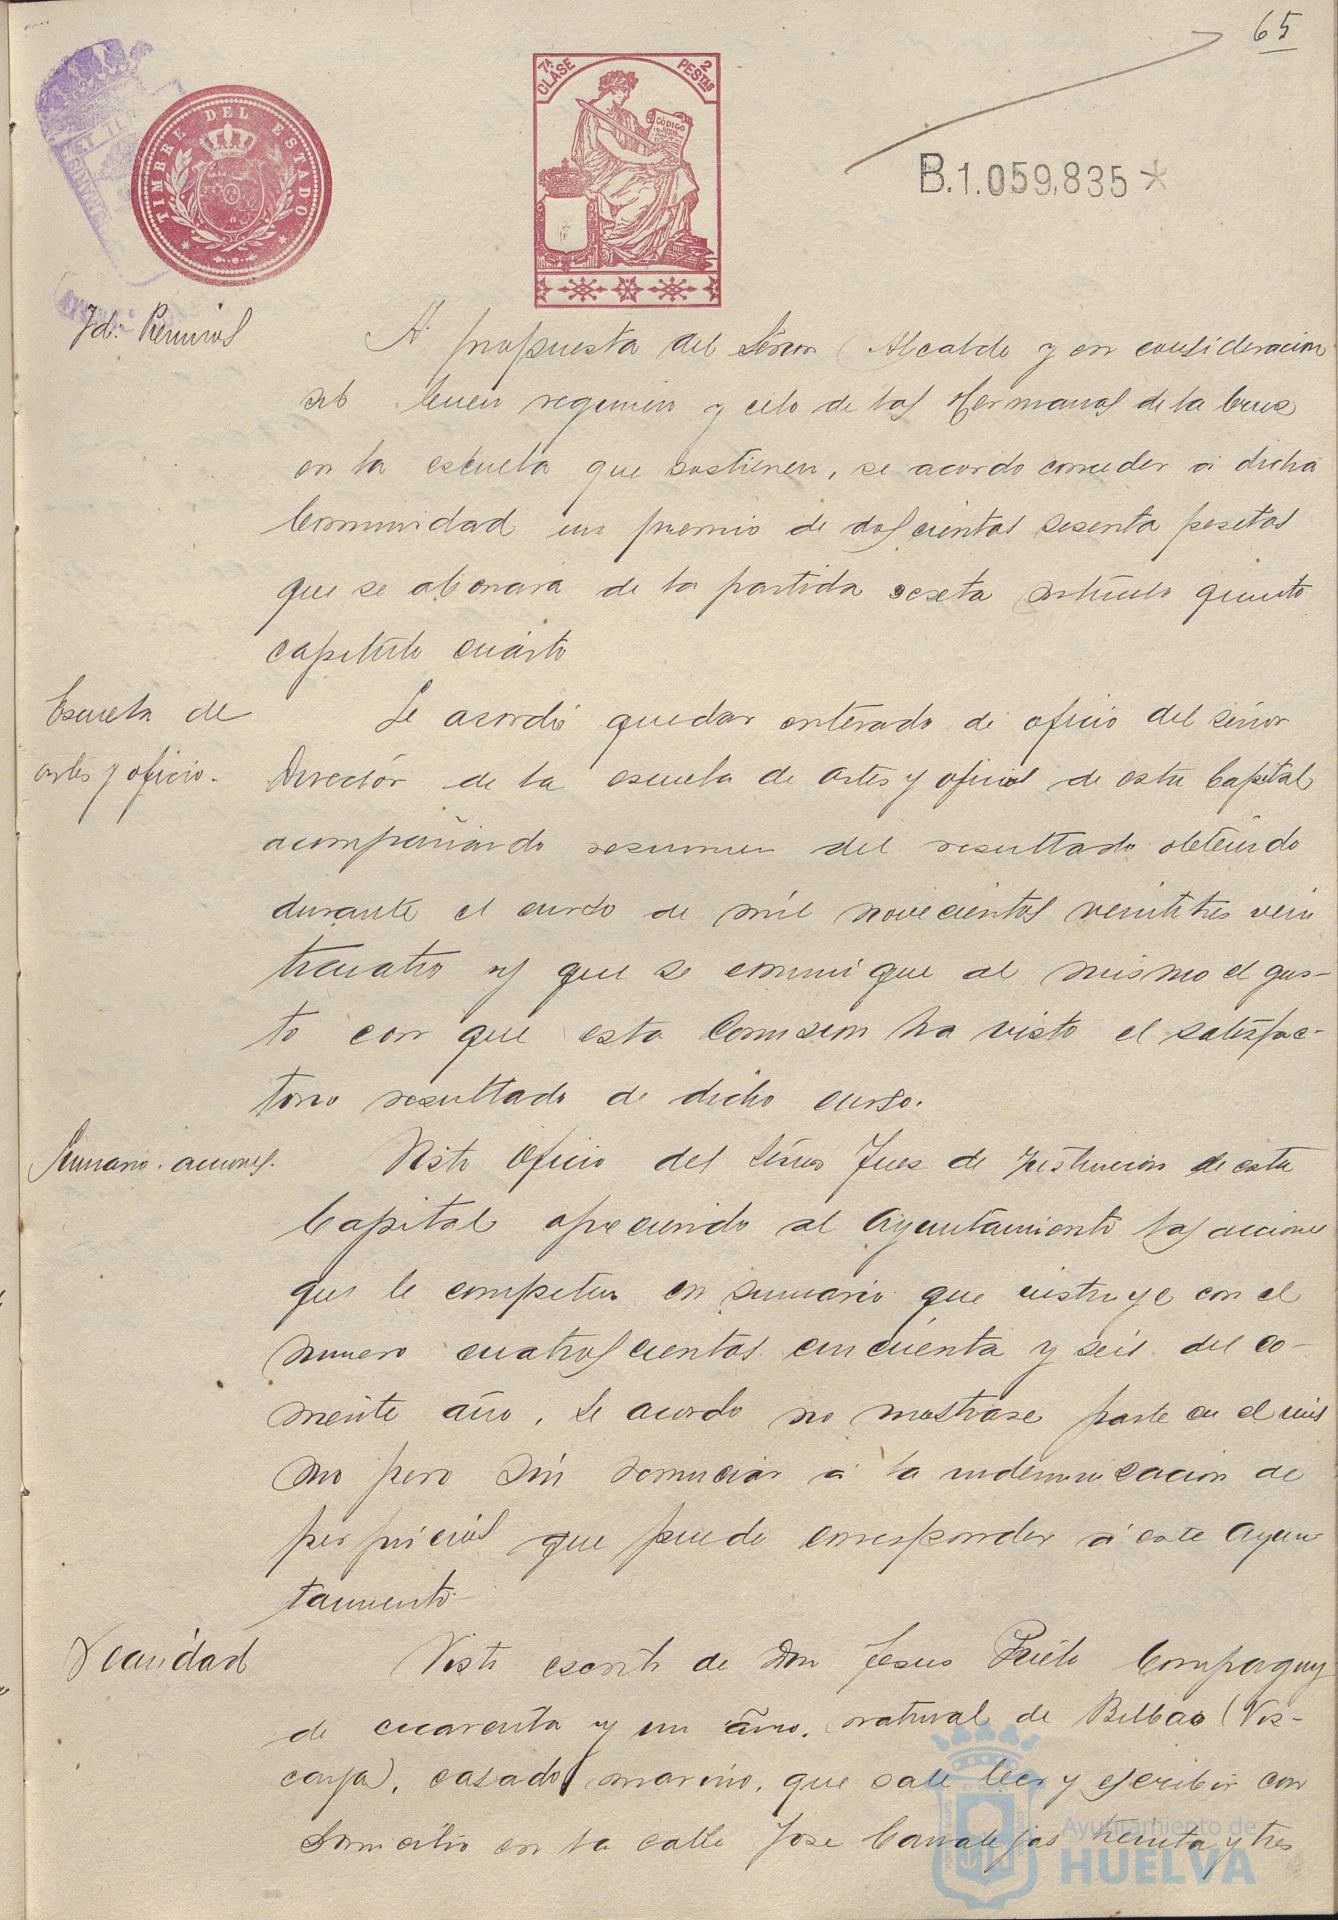 65
7ª CLASE
2 PESTAS
CÓDIGO
TIMBRE DEL ESTADO
B.1.059,835*
Id. Premios
A propuesta del Señor Alcalde y en consideracion
al buen regimen y celo de las Hermanas de la Cruz
en la escuela que sostienen, se acordo conceder á dicha
Comunidad un premio de doscientas sesenta pesetas
que se abonará de la partida sexta artículo quinto
capitulo cuárto
Escuela de
artes y oficio.
Se acordó quedar enterado de oficio del señor
Director de la escuela de artes y oficios de esta Capital
acompañando resumen del resultado obtenido
durante el curso de mil novecientos veintitres vein
ticuatro y que se comunique al mismo el gus-
to con que esta Comision ha visto el satisfac-
torio resultado de dicho curso.
Sumario. acciones.
Visto oficio del Señor Juez de Instrucion de esta
Capital ofreciendo al Ayuntamiento las acciones
que le competen en sumario que instruye con el
numero cuatroscientos cincuenta y seis del co-
rriente año, se acordo no mostrase parte en el mis
mo pero sin renunciar á la indemnizacion de
perjuicios que puede corresponder á este Ayun
tamiento
Vecindad
Visto escrito de Don Jesus Prieto
de cuarenta y un año, natural de Bilbao (Viz-
caya), casado, marino, que sabe leer y escribir con
domicilio en la calle Jose Canalejas treinta y tres
Ayuntamiento de
HUELVA